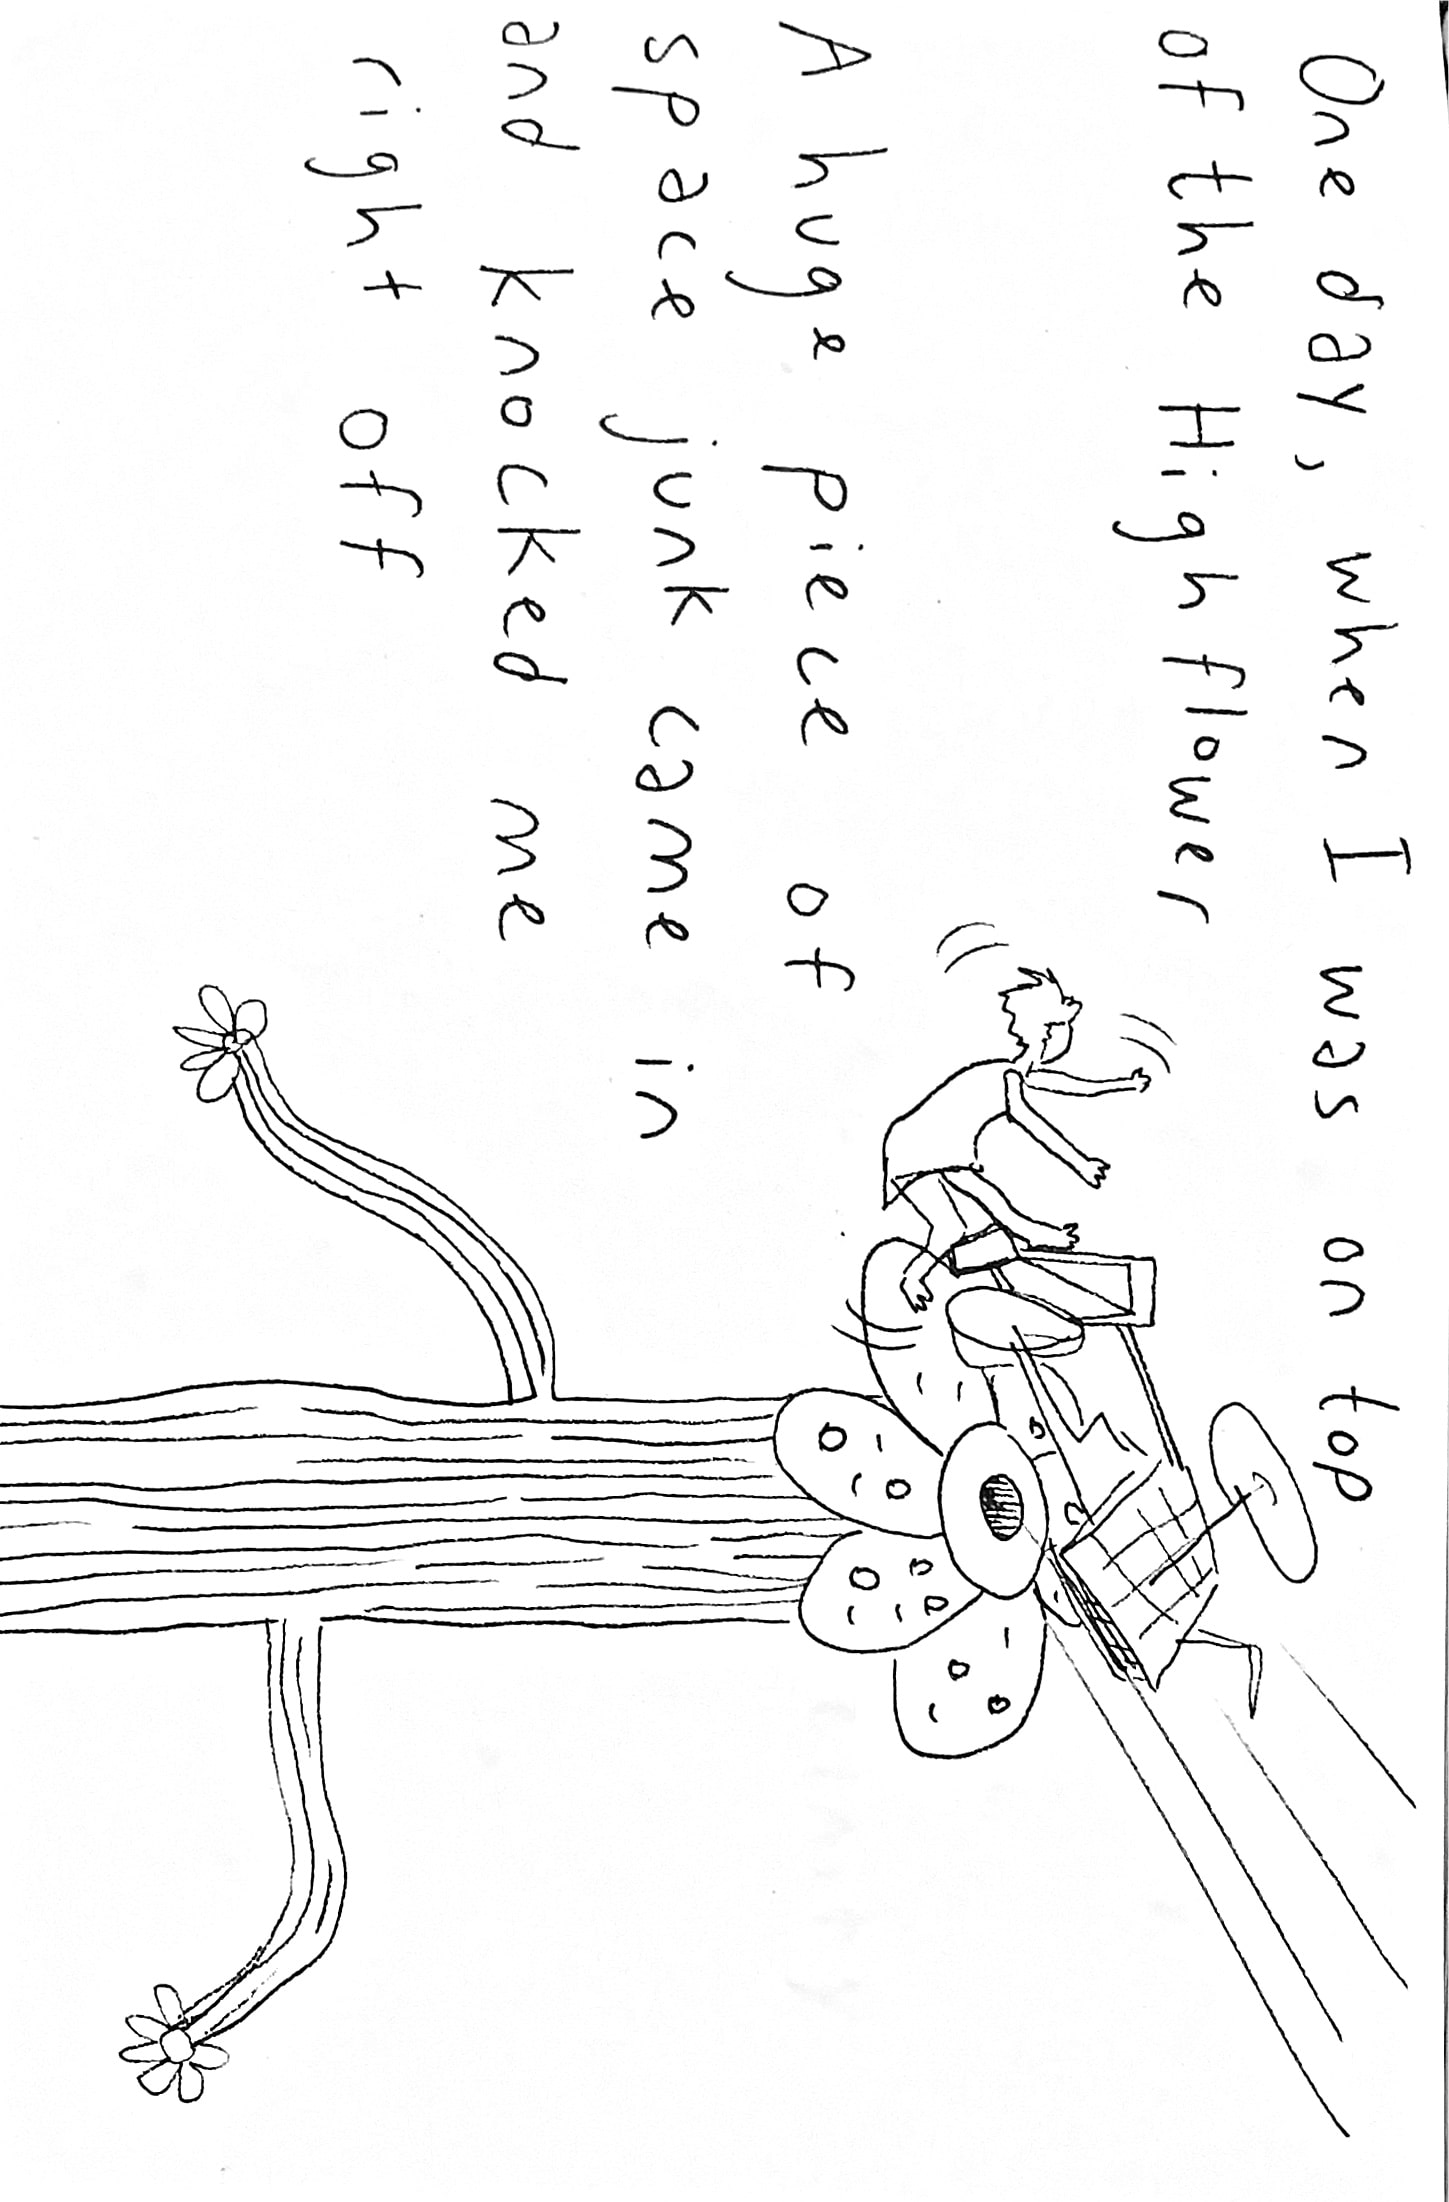 One day, when I was on top
of the High flower
A huge piece of
space junk came in
and knocked me
right off